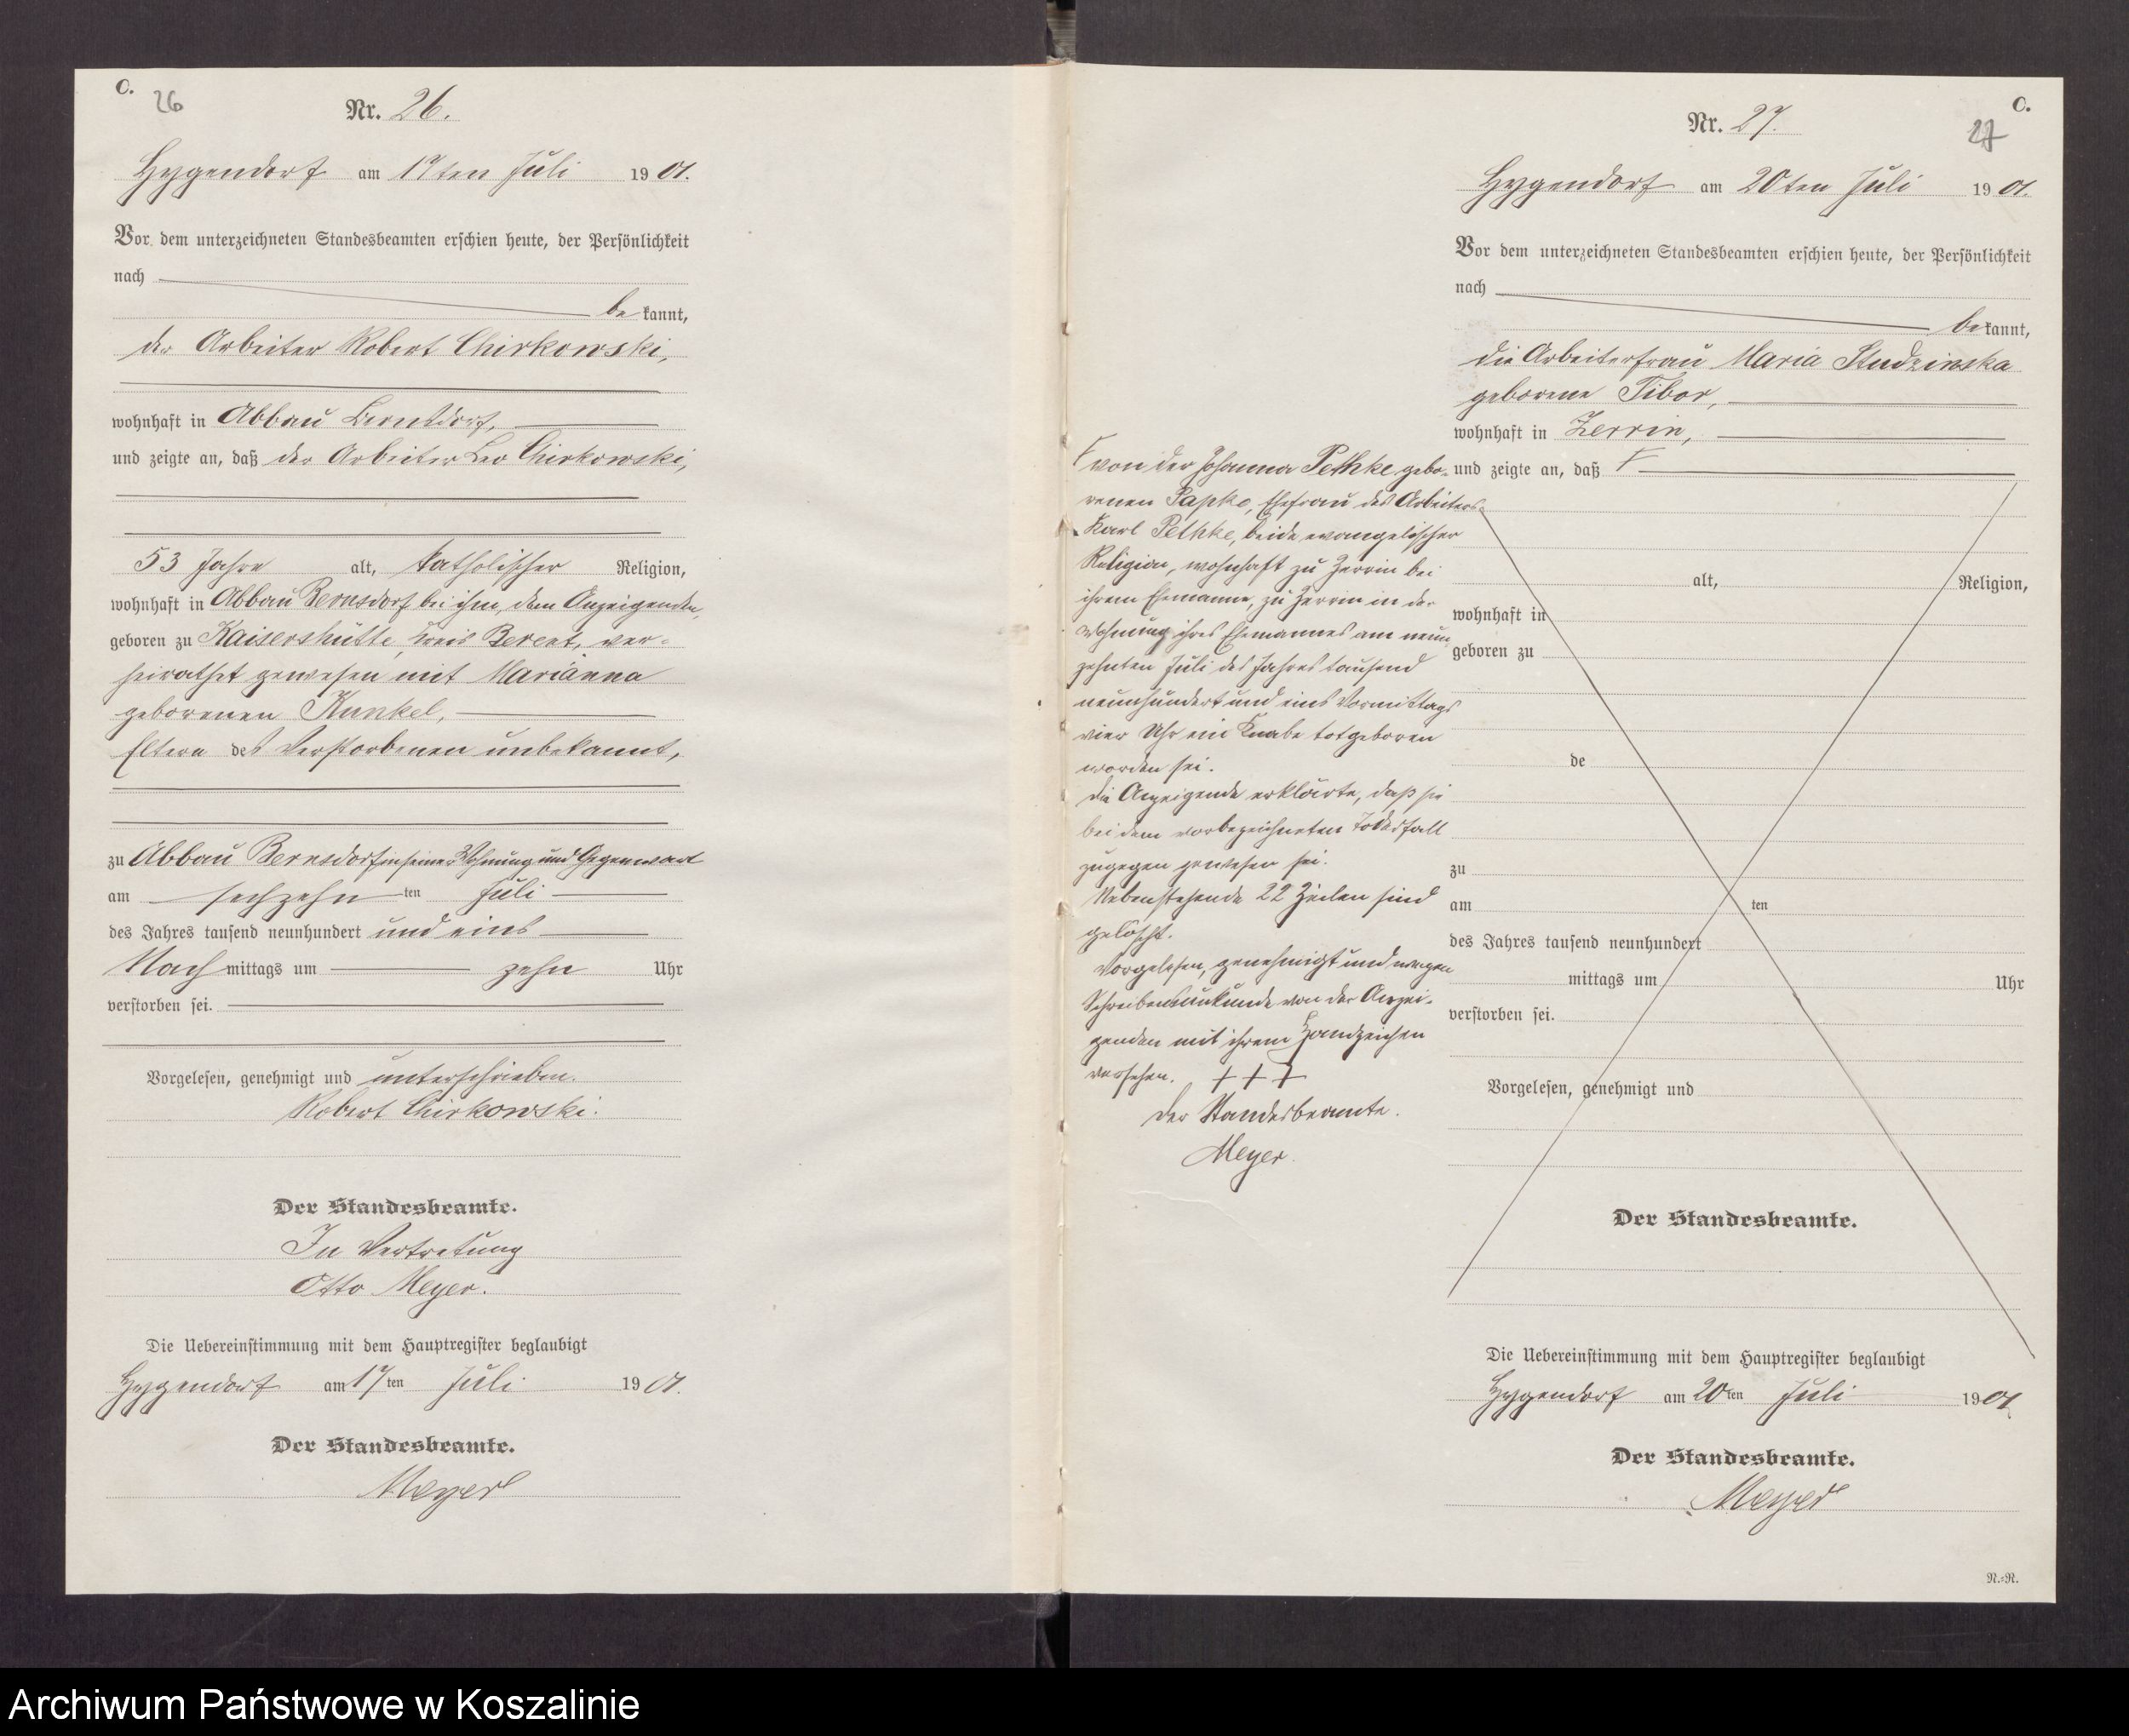 C.
26
Nr. 26.
Hygendorf am 17ten Juli 1901.
Vor dem unterzeichneten Standesbeamten erschien heute, der Persönlichkeit
nach
bekannt,
der Arbeiter Robert Chirkowski,
wohnhaft in Abbau Bernsdorf,
und zeigte an, daß der Arbeiter Leo Chirkowski,
53 Jahre alt, katholischer Religion,
wohnhaft in Abbau Bernsdorf bei ihm, dem Anzeigenden,
geboren zu Kaisershütte, Kreis Berent, ver-
heirathet gewesen mit Marianna
geborenen Kunkel,
Eltern des Verstorbenen unbekannt,
zu Abbau Bernsdorf in seine Wohnung und Gegenwart
am sechzehnten Juli
des Jahres tausend neunhundert und eins
Nachmittags um zehn Uhr
verstorben sei.
Vorgelesen, genehmigt und unterschrieben.
Robert Chirkowski.
Der Standesbeamte.
In Vertretung
Otto Meyer.
Die Uebereinstimmung mit dem Hauptregister beglaubigt
Hygendorf am 17ten Juli 1901.
Der Standesbeamte.
Meyer
C.
27
Nr. 27.
Hygendorf am 20ten Juli 1901.
Vor dem unterzeichneten Standesbeamten erschien heute, der Persönlichkeit
nach
bekannt,
die Arbeiterfrau Maria Studzinska
geborene Tibor,
wohnhaft in Zerrin,
und zeigte an, daß
von der Johanna Pethke gebo-
renen Papko, Ehefrau des Arbeiters
Karl Pethke, beide evangelischer
Religion, wohnhaft zu Zerrin bei
ihrem Ehemanne, zu Zerrin in der
Wohnung ihres Ehemannes am neun
zehnten Juli des Jahres tausend
neunhundert und eins Vormittags
vier Uhr ein Knabe totgeboren
worden sei.
Die Anzeigende erklärte, daß sie
bei dem vorbezeichneten Todesfall
zugegen gewesen sei.
Nebenstehende 22 Zeilen sind
gelöscht.
Vorgelesen, genehmigt und wegen
Schreibensunkunde von der Anzei-
genden mit ihrem Handzeichen
versehen. +++
Der Standesbeamte.
Meyer.
alt, Religion,
wohnhaft in
geboren zu
de
zu
am ten
des Jahres tausend neunhundert
mittags um Uhr
verstorben sei.
Vorgelesen, genehmigt und
Der Standesbeamte.
Die Uebereinstimmung mit dem Hauptregister beglaubigt
Hygendorf am 20ten Juli 1901
Der Standesbeamte.
Meyer
N.-N.
Archiwum Państwowe w Koszalinie